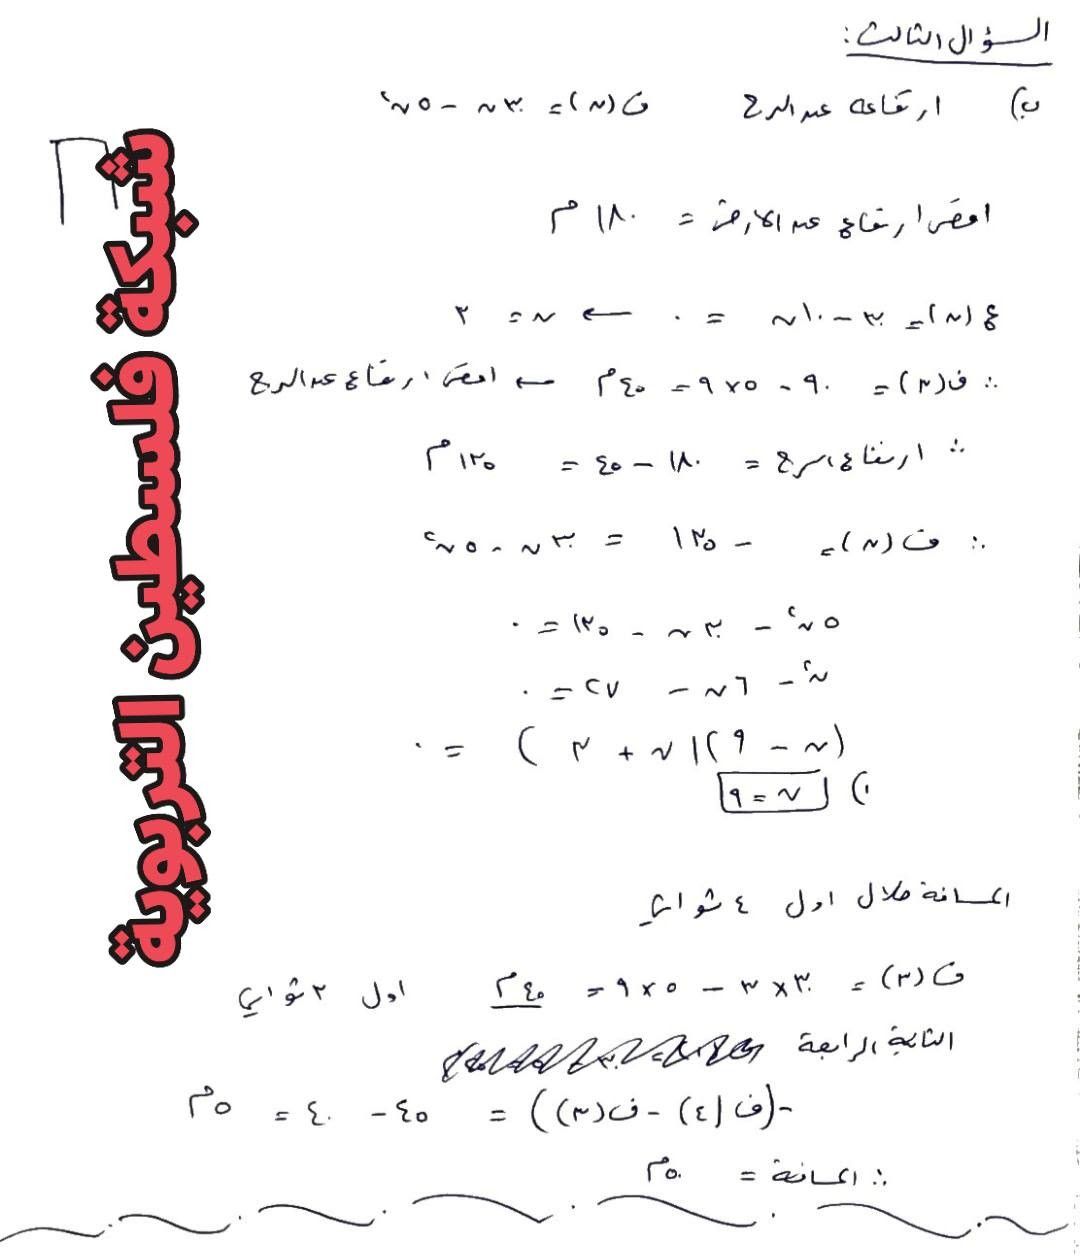 السؤال الثالث:
ب) ارتفاعه عن البرج ف(ن) = ٣٠ن - ٥ن٢
اقصى ارتفاع عن الارض = ١٨٠ م
ع(ن) = ٣٠ - ١٠ن = ٠ ← ن = ٣
∴ ف(٣) = ٩٠ - ٥×٩ = ٤٥م ← اقصى ارتفاع عن البرج
∴ ارتفاع البرج = ١٨٠ - ٤٥ = ١٣٥م
∴ ف(ن) = - ١٣٥ = ٣٠ن - ٥ن٢
٥ن٢ - ٣٠ن - ١٣٥ = ٠
ن٢ - ٦ن - ٢٧ = ٠
(ن - ٩)(ن + ٣) = ٠
١) ن = ٩
المسافة خلال اول ٤ ثواني
ف(٣) = ٣٠×٣ - ٥×٩ = ٤٥م اول ٣ ثواني
الثانية الرابعة
-(ف(٤) - ف(٣)) = ٤٥ - ٤٠ = ٥م
∴ المسافة = ٥٠م
شبكة فلسطين التربوية